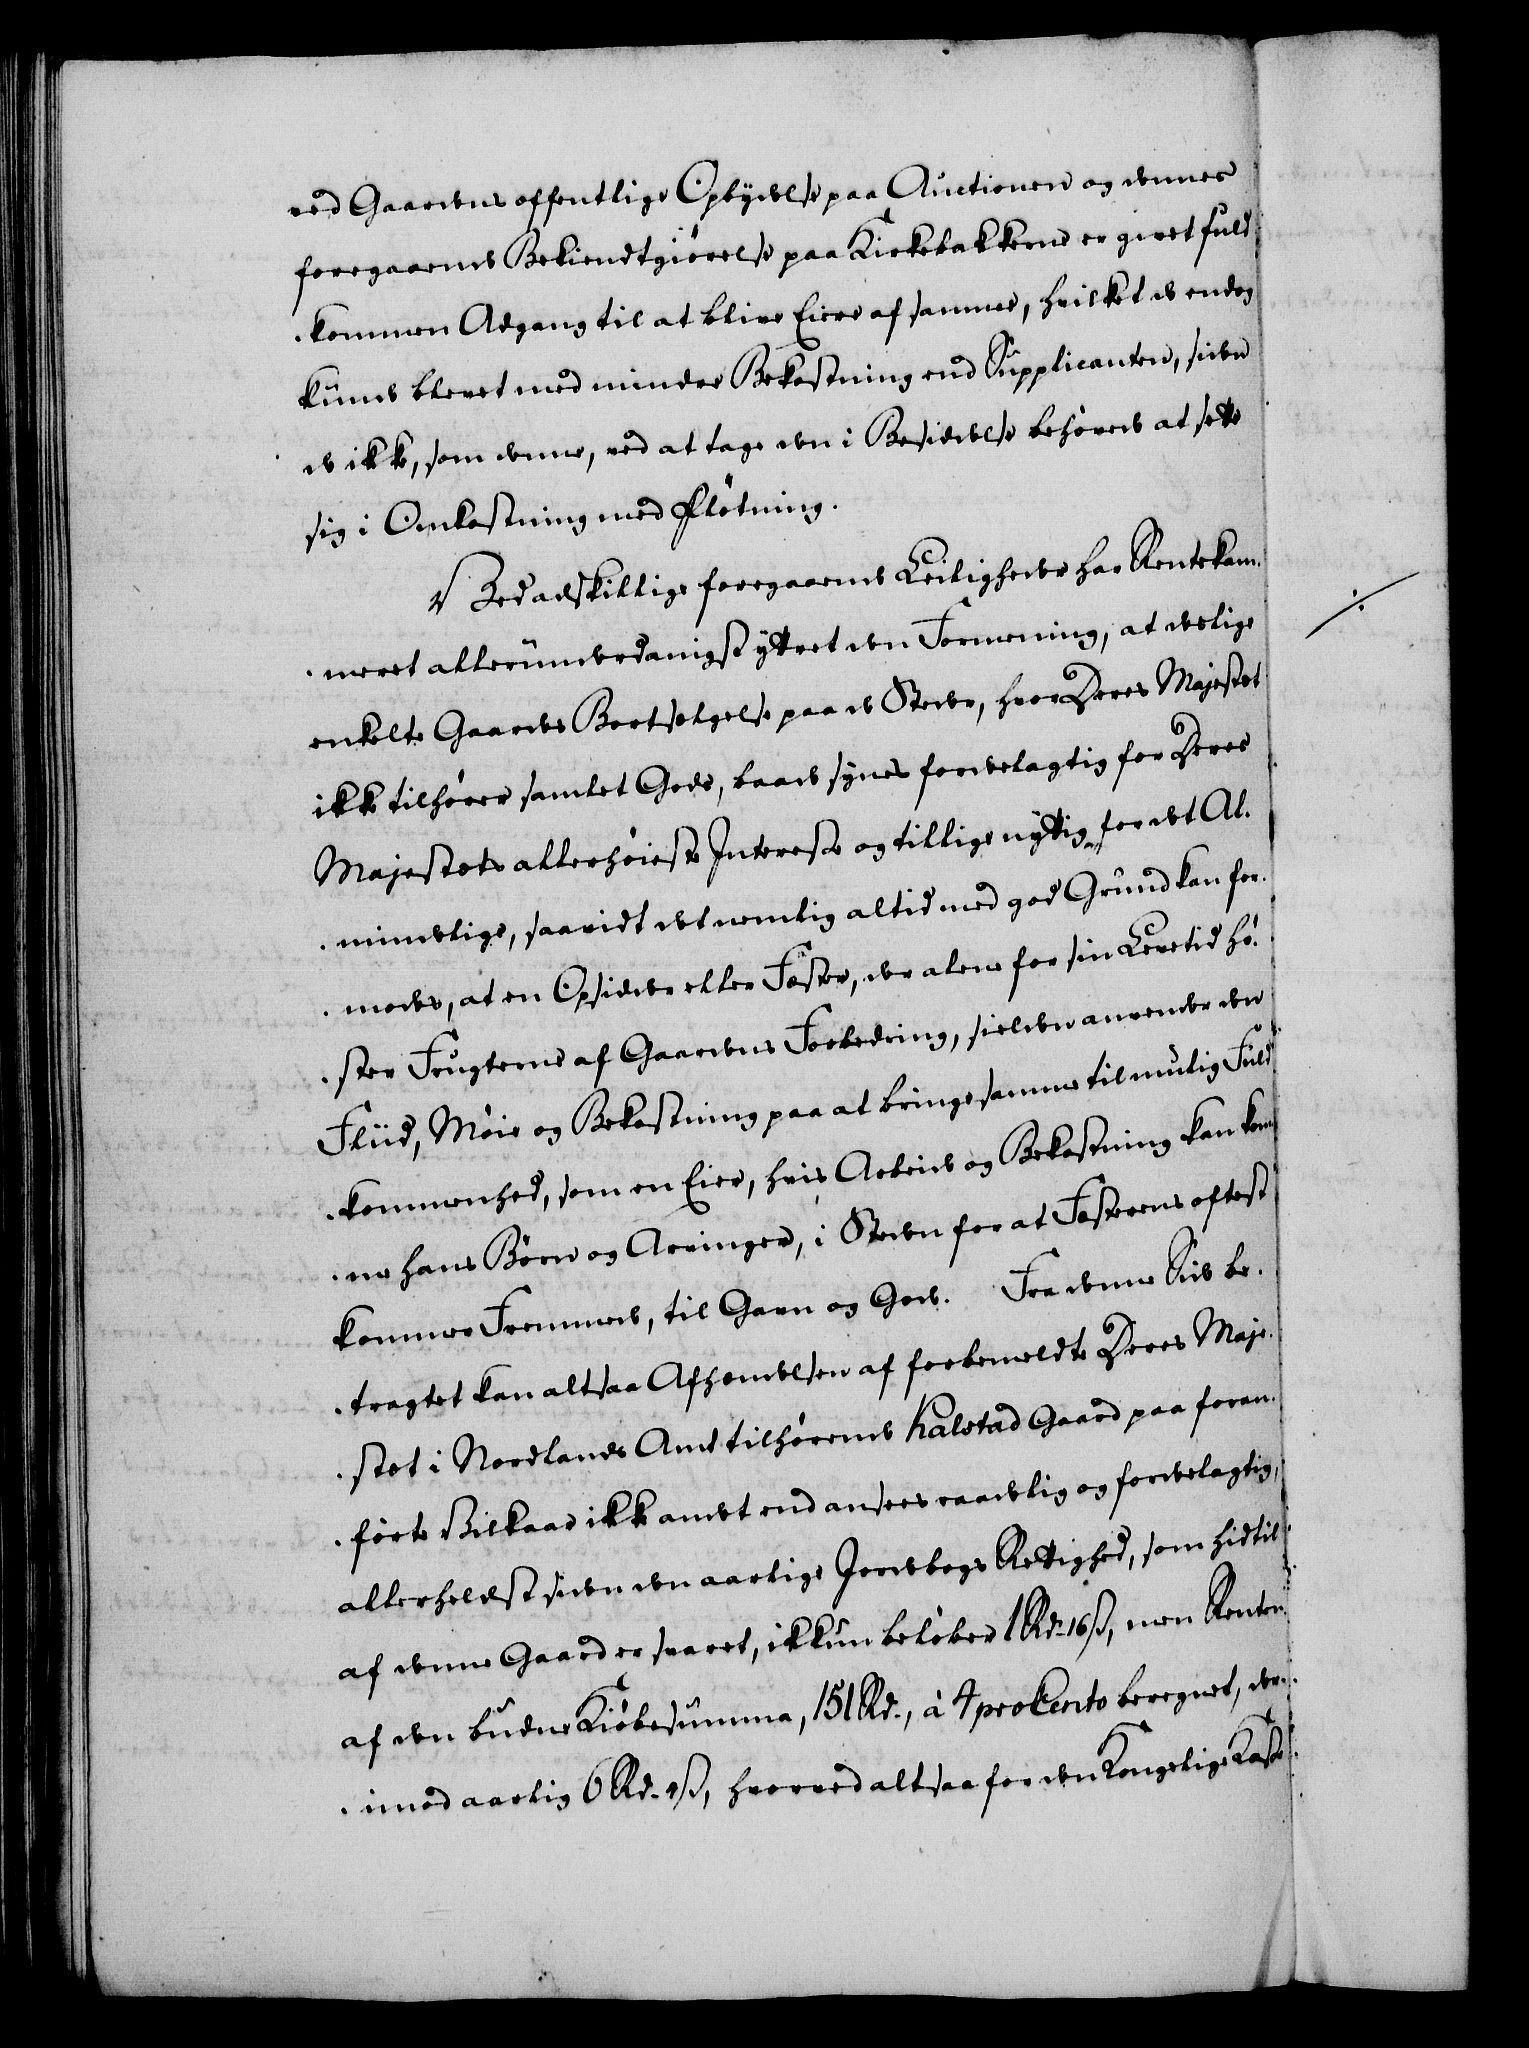 ved Gaardens offentlige Opbydelse paa Auctionen og dennes
foregaaende Bekiendtgiørelse paa Kirkebakkerne er givet fuld
kommen Adgang til at blive Eiere af samme, hvilket de endog
kunde blevet med mindre Bekostning end Supplicanten, siden
de ikke, som denne, ved at tage den i Besiddelse behøvede at sette
sig i Omkostning med Fløtning.
Ved adskillige foregaaende Leiligheder har Rentekam-
meret allerunderdanigst yttret den Formening, at deslige
enkelte Gaardes Bortselgelse paa de Steder, hvor Deres Majestet
ikke tilhører samlet Gods, baade synes fordelagtig for Deres
Majestets allerhøieste Interesse og tillige nyttig for det Al-
mindelige, saavidt det nemlig altid med god Grund kan for-
modes, at en Opsidder eller Fæster, der alene for sin Levetid hø-
ster Frugterne af Gaardens Forbedring, sielden anvender den
Fliid, Møie og Bekostning paa at bringe samme til mulig Fuld
kommenhed, som en Eier, hvis Arbeide og Bekostning kan kom-
me hans Børn og Arvinger, i Steden for at Fæsterens oftest
kommer Fremmede, til Gavn og Gode. Fra denne Side be-
tragtet kan altsaa Afhændelsen af forbemeldte Deres Maje-
stet i Nordlands Amt tilhørende Kalstad Gaard paa foran-
førte Vilkaar ikke andet end ansees raadelig og fordelagtig,
allerheldst siden den aarlige Jordebogs Rettighed, som hidtil
af denne Gaard er svaret, ikkun beløber 1 Rd. 16 ß, men Renten
af den budne Kiøbesumma, 151 Rd., à 4 pro Cento beregnet, der-
imod aarlig 6 Rd. 4 ß, hvorved altsaa for den Kongelige Kasse